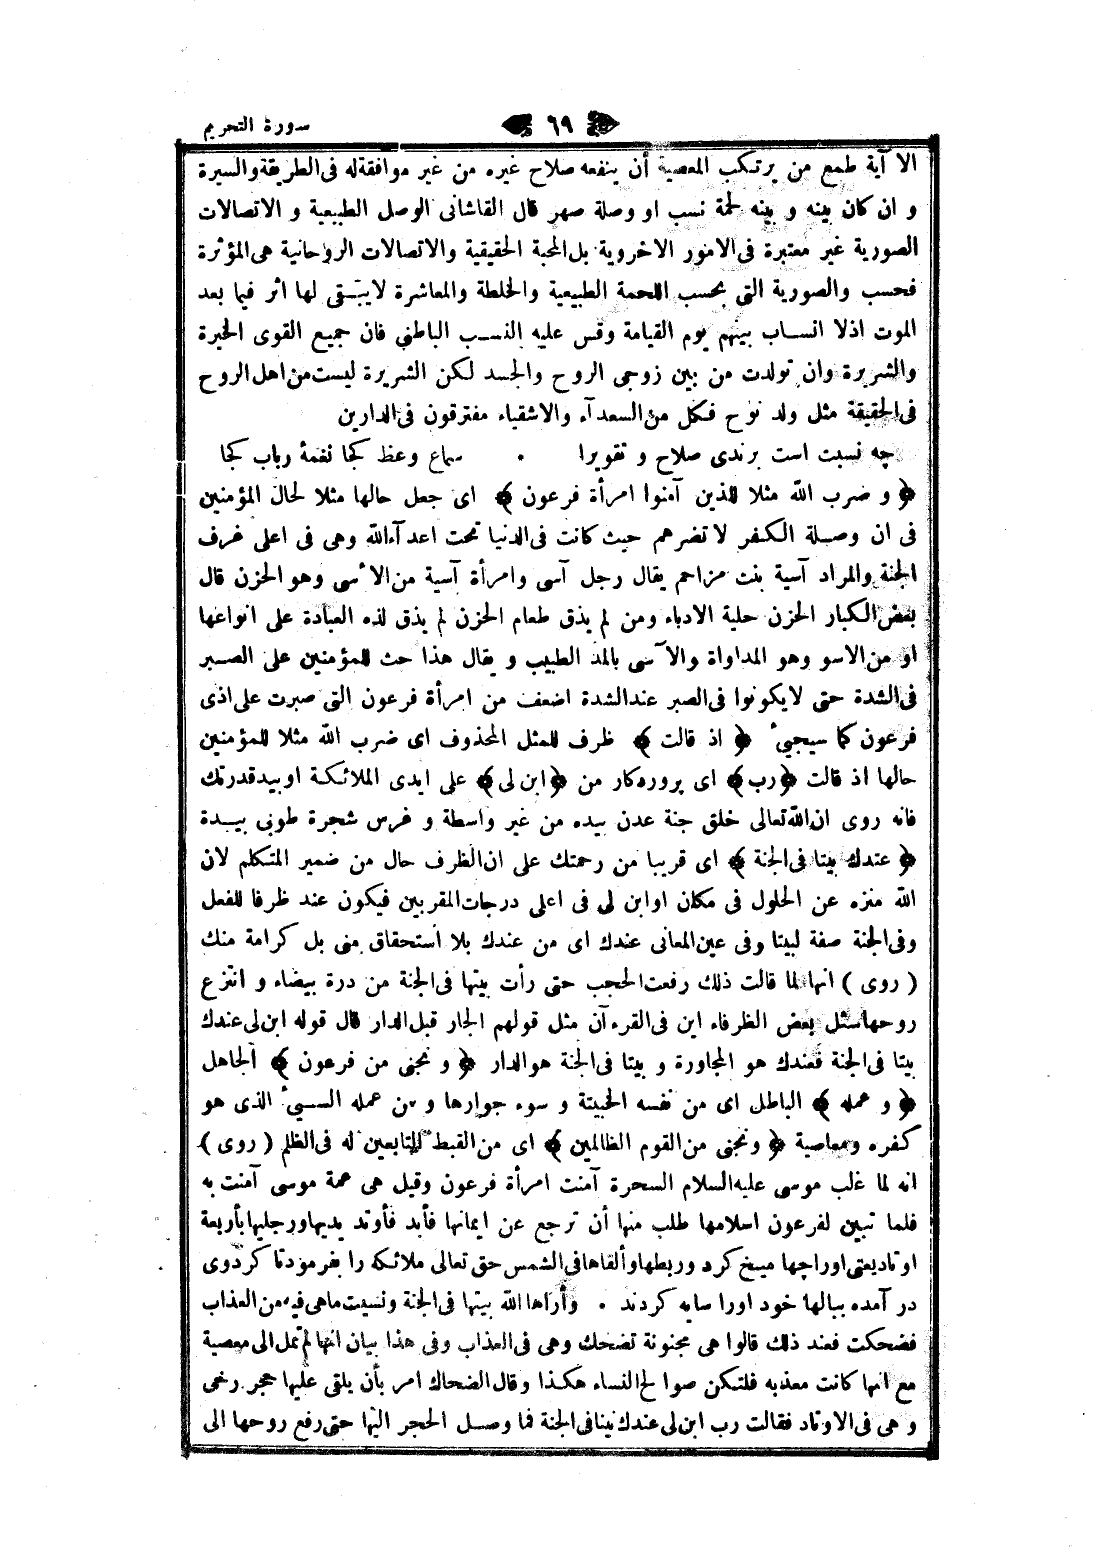 ٦٩ سورة التحريم
الا آية طمع من يرتكب المعصية أن ينفعه صلاح غيره من غير موافقة له فى الطريقة والسيرة
و ان كان بينه و بينه لحمة نسب او وصلة صهر قال القاشانى الوصل الطبيعية و الاتصالات
الصورية غير معتبرة فى الامور الاخروية بل المحبة الحقيقية والاتصالات الروحانية هى المؤثرة
فحسب والصورية التى بحسب اللحمة الطبيعية والخلطة والمعاشرة لايبقى لها اثر فيما بعد
الموت اذلا انساب بينهم يوم القيامة وقس عليه النسب الباطنى فان جميع القوى الخيرة
والشريرة وان تولدت من بين زوجى الروح والجسد لكن الشريرة ليست من اهل الروح
فى الحقيقة مثل ولد نوح فكل من السعدآء والاشقياء مفترقون فى الدارين
چه نسبت است برندى صلاح و تقويرا . سماع وعظ كجا نغمۀ رباب كجا
﴿ و ضرب الله مثلا للذين آمنوا امرأة فرعون ﴾ اى جعل حالها مثلا لحال المؤمنين
فى ان وصلة الكفر لا تضرهم حيث كانت فى الدنيا تحت اعدآءالله وهى فى اعلى غرف
الجنة والمراد آسية بنت مزاحم يقال رجل آسى وامرأة آسية من الأسى وهو الحزن قال
بعض الكبار الحزن حلية الادباء ومن لم يذق طعام الحزن لم يذق لذه العبادة على انواعها
او من الاسو وهو المداواة والآسى بالمد الطبيب و يقال هذا حث للمؤمنين على الصبر
فى الشدة حتى لايكونوا فى الصبر عند الشدة اضعف من امرأة فرعون التى صبرت على اذى
فرعون كما سيجيئ ﴿ اذ قالت ﴾ ظرف للمثل المحذوف اى ضرب الله مثلا للمؤمنين
حالها اذ قالت ﴿رب﴾ اى پروردكار من ﴿ابن لى﴾ على ايدى الملائكة اوبيد قدرتك
فانه روى ان الله تعالى خلق جنة عدن بيده من غير واسطة و غرس شجرة طوبى بيدة
﴿ عندك بيتا فى الجنة ﴾ اى قريبا من رحمتك على ان الظرف حال من ضمير المتكلم لان
الله منزه عن الحلول فى مكان اوابن لى فى اعلى درجات المقربين فيكون عند ظرفا للفعل
وفى الجنة صفة لبيتا وفى عين المعانى عندك اى من عندك بلا استحقاق منى بل كرامة منك
( روى ) انها لما قالت ذلك رفعت الحجب حتى رأت بيتها فى الجنة من درة بيضاء و انتزع
روحها سئل بعض الظرفاء اين فى القرءآن مثل قولهم الجار قبل الدار قال قوله ابن لى عندك
بيتا فى الجنة فعندك هو المجاورة و بيتا فى الجنة هو الدار ﴿ و نجنى من فرعون ﴾ الجاهل
﴿ و عمله ﴾ الباطل اى من نفسه الخبيثة و سوء جوارها و من عمله السيئ الذى هو
كفره ومعاصية ﴿ ونجنى من القوم الظالمين ﴾ اى من القبط التابعين له فى الظلم ( روى )
انه لما غلب موسى عليه السلام السحرة آمنت امرأة فرعون وقيل هى عمة موسى آمنت به
فلما تبين لفرعون اسلامها طلب منها أن ترجع عن ايمانها فأبد فأوتد يديها ورجليها بأربعة
اوتاد يعنى اوراچها ميخ كرد وربطها وألقاها فى الشمس حق تعالى ملائكه را بفرمود تا كردوى
در آمده ببالها خود اورا سايه كردند . وأراها الله بيتها فى الجنة ونسيت ماهى فيه من العذاب
فضحكت فعند ذلك قالوا هى مجنونة تضحك وهى فى العذاب وفى هذا بيان انها لم تمل الى معصية
مع انها كانت معذبه فلتكن صوا لح النساء هكذا وقال الضحاك امر بأن يلقى عليها حجر رحى
و هى فى الاوتاد فقالت رب ابن لى عندك بيتا فى الجنة فما وصل الحجر اليها حتى رفع روحها الى